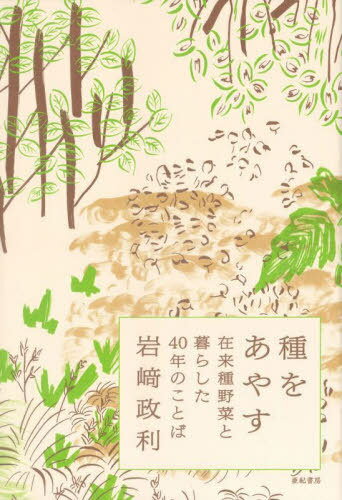 種を
あやす
在来種野菜と
暮らした
40年のことば
岩﨑政利
亜紀書房